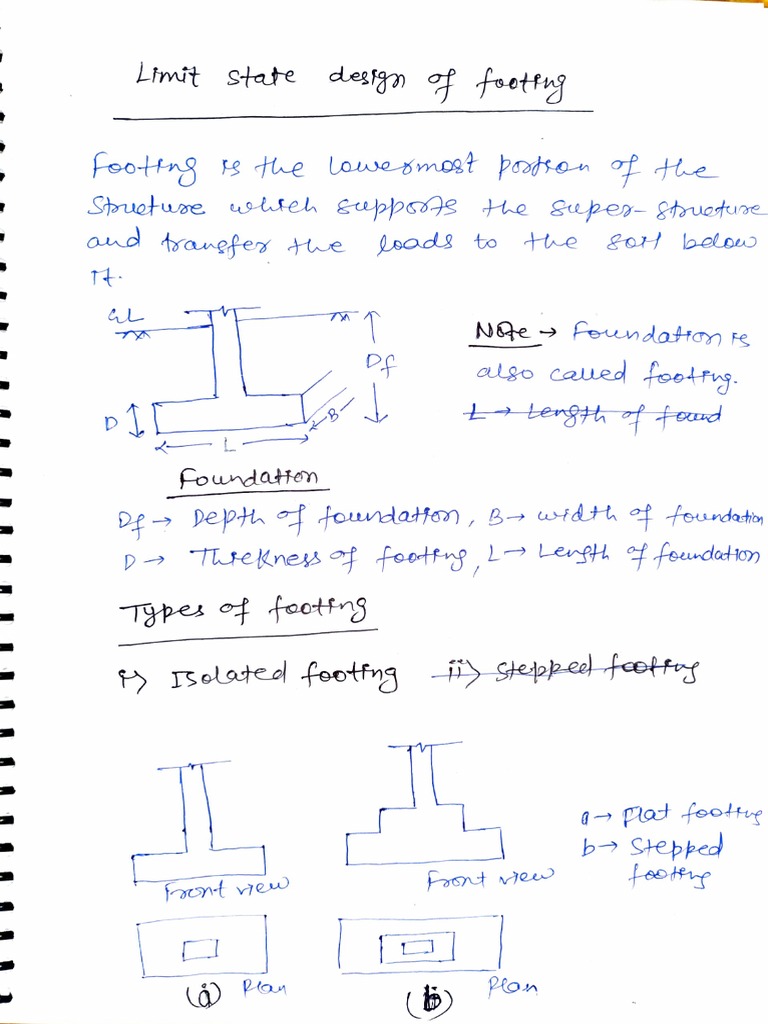 Limit state design of footing
Footing is the lowermost portion of the
structure which supports the super-structure
and transfer the loads to the soil below
it.
GL
Df
D
L
B
Note → Foundation is
also called footing.
L → Length of found
Foundation
Df → Depth of foundation, B → width of foundation
D → Thickness of footing, L → Length of foundation
Types of footing
i) Isolated footing ii) stepped footing
a → Flat footing
b → Stepped
footing
Front view
Front view
Plan
Plan
(a)
(b)